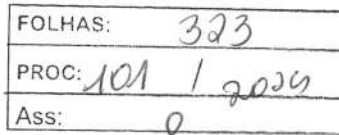 FOLHAS: 323
PROC: 101 / 2024
Ass: